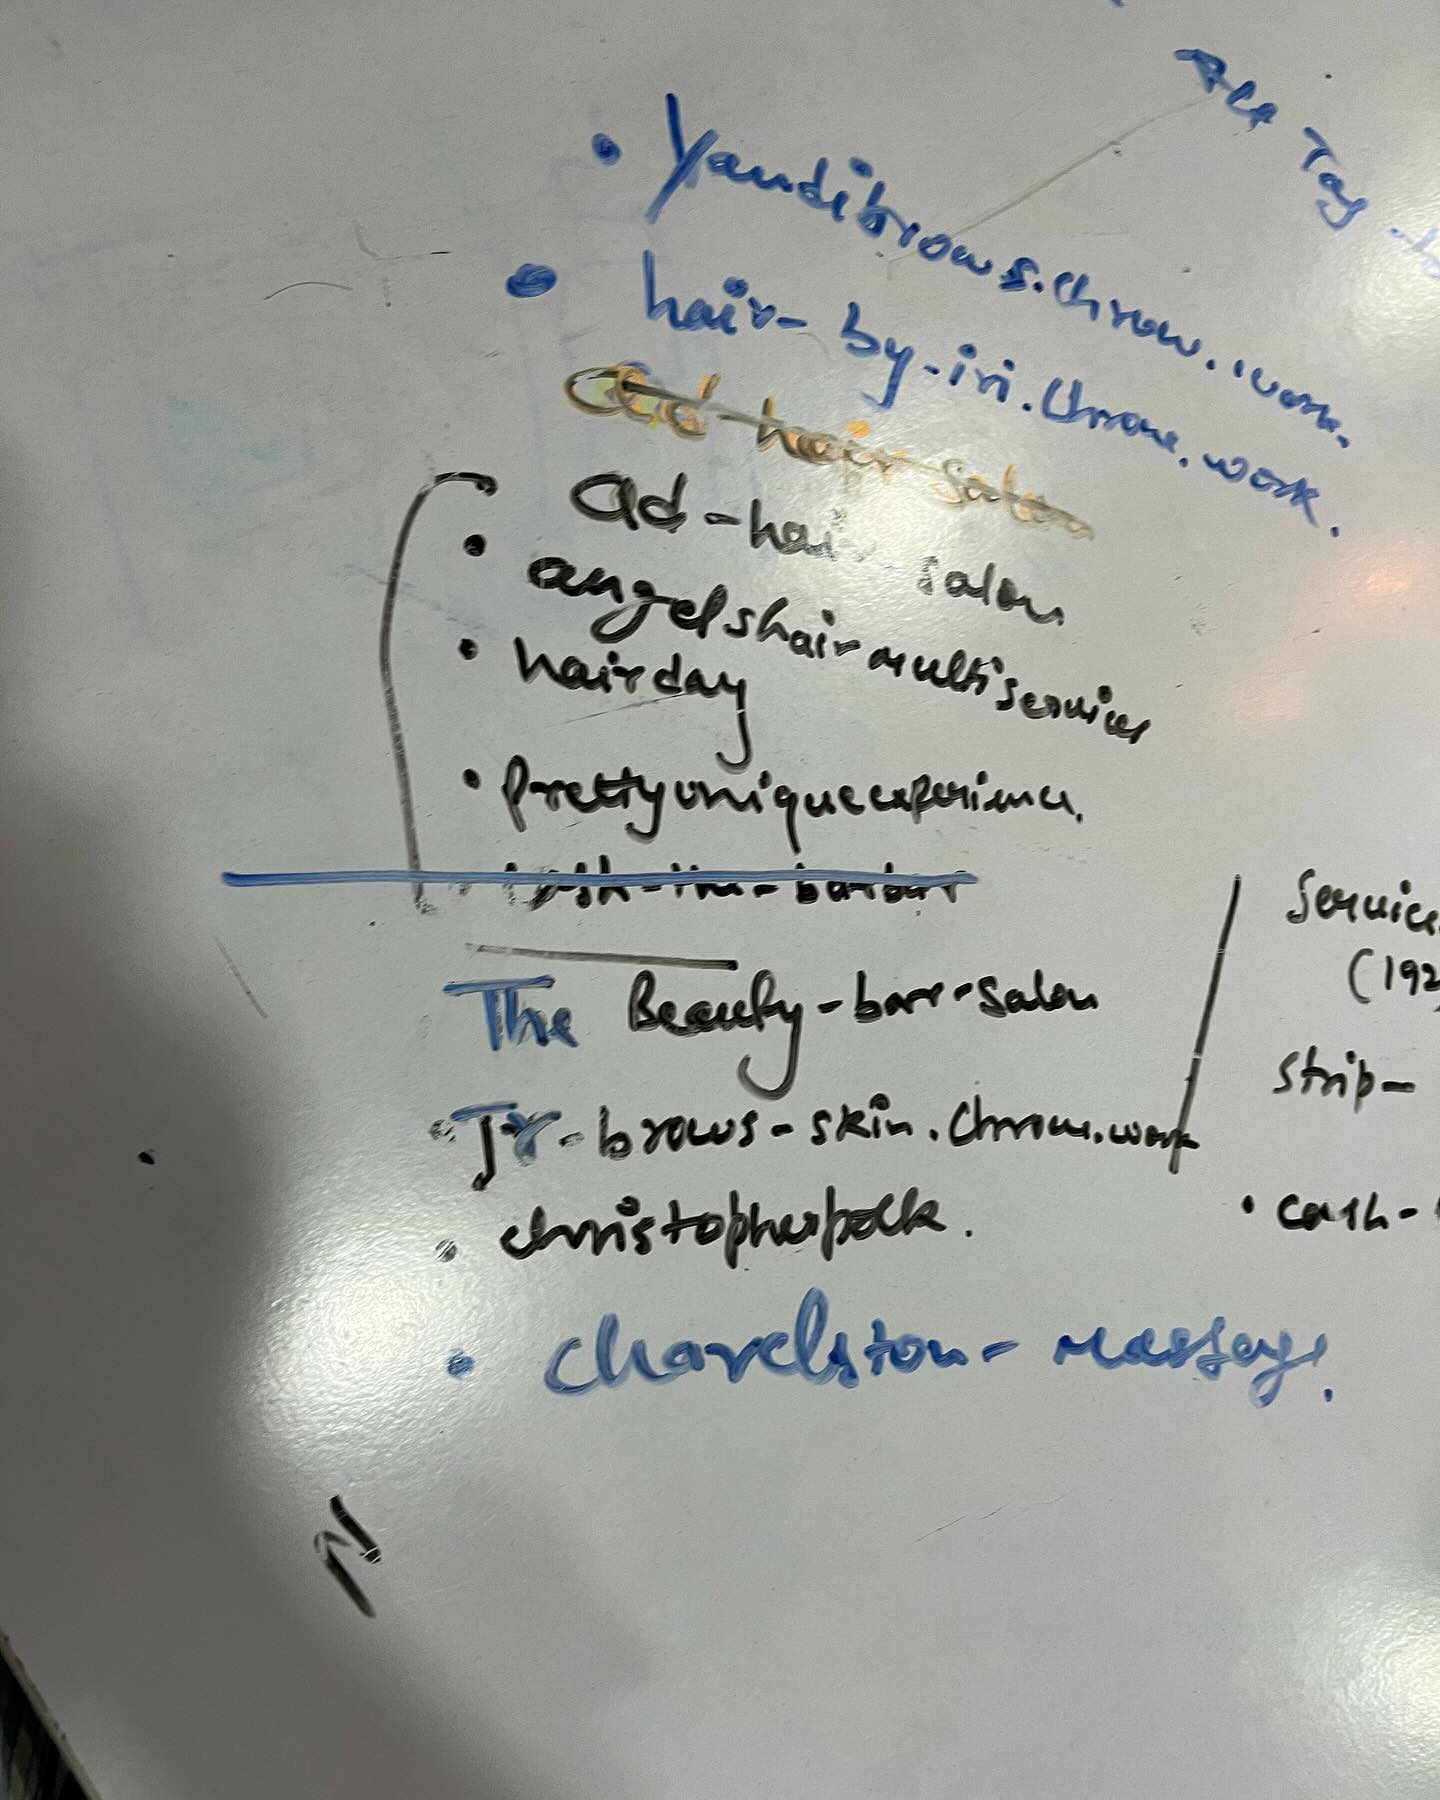 Yandibrows.chrow.work.
hair-by-iri.Chrome.work.
ad-hair salon
ad-hair salon
angelshairmultiservices
hairday
Prettyuniqueexperience.
-the-barber
The Beauty-bar-salon
Jr-brows-skin.Chrom.work
christopherpolk.
Charelston-massage.
Tag
Service
(192
Strip-
cash-